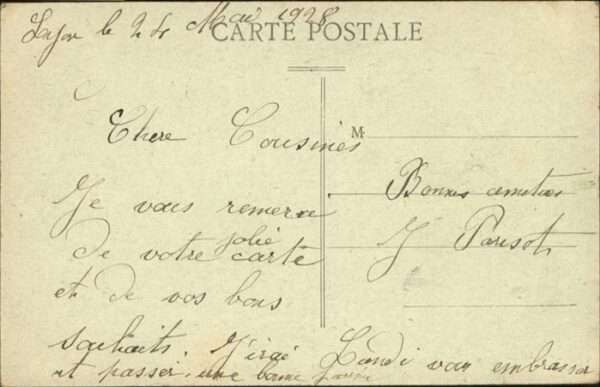 le 24 Mai 1928
CARTE POSTALE
Chere Cousines
M
Je vous remerci
de votre jolie carte
et de vos bons
souhaits. J'irai Lundi vous embrasser
et passer une bonne
Bonnes amities
J Parisot